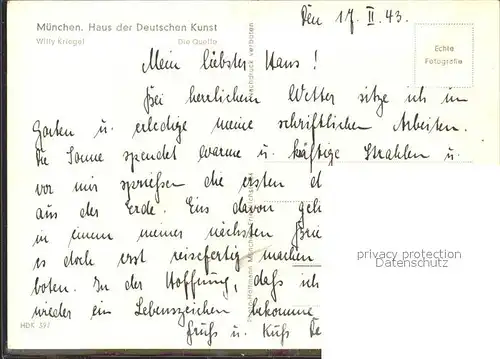 München. Haus der Deutschen Kunst
Willy Kriegel Die Quelle
Den 17. II. 43.
Echte
Fotografie
Nachdruck verboten
Mein liebster Hans!
Bei herrlichem Wetter sitze ich im
Garten u. erledige meine schriftlichen Arbeiten.
Die Sonne spendet warme u. kräftige Strahlen u.
vor mir spriessen die ersten
aus der Erde. Eins davon
in einem meiner nächsten
es doch erst reisefertig machen
boten. In der Hoffnung, daß ich
wieder ein Lebenszeichen bekomme
Gruß u. Kuß
privacy protection
Datenschutz
HDK 397